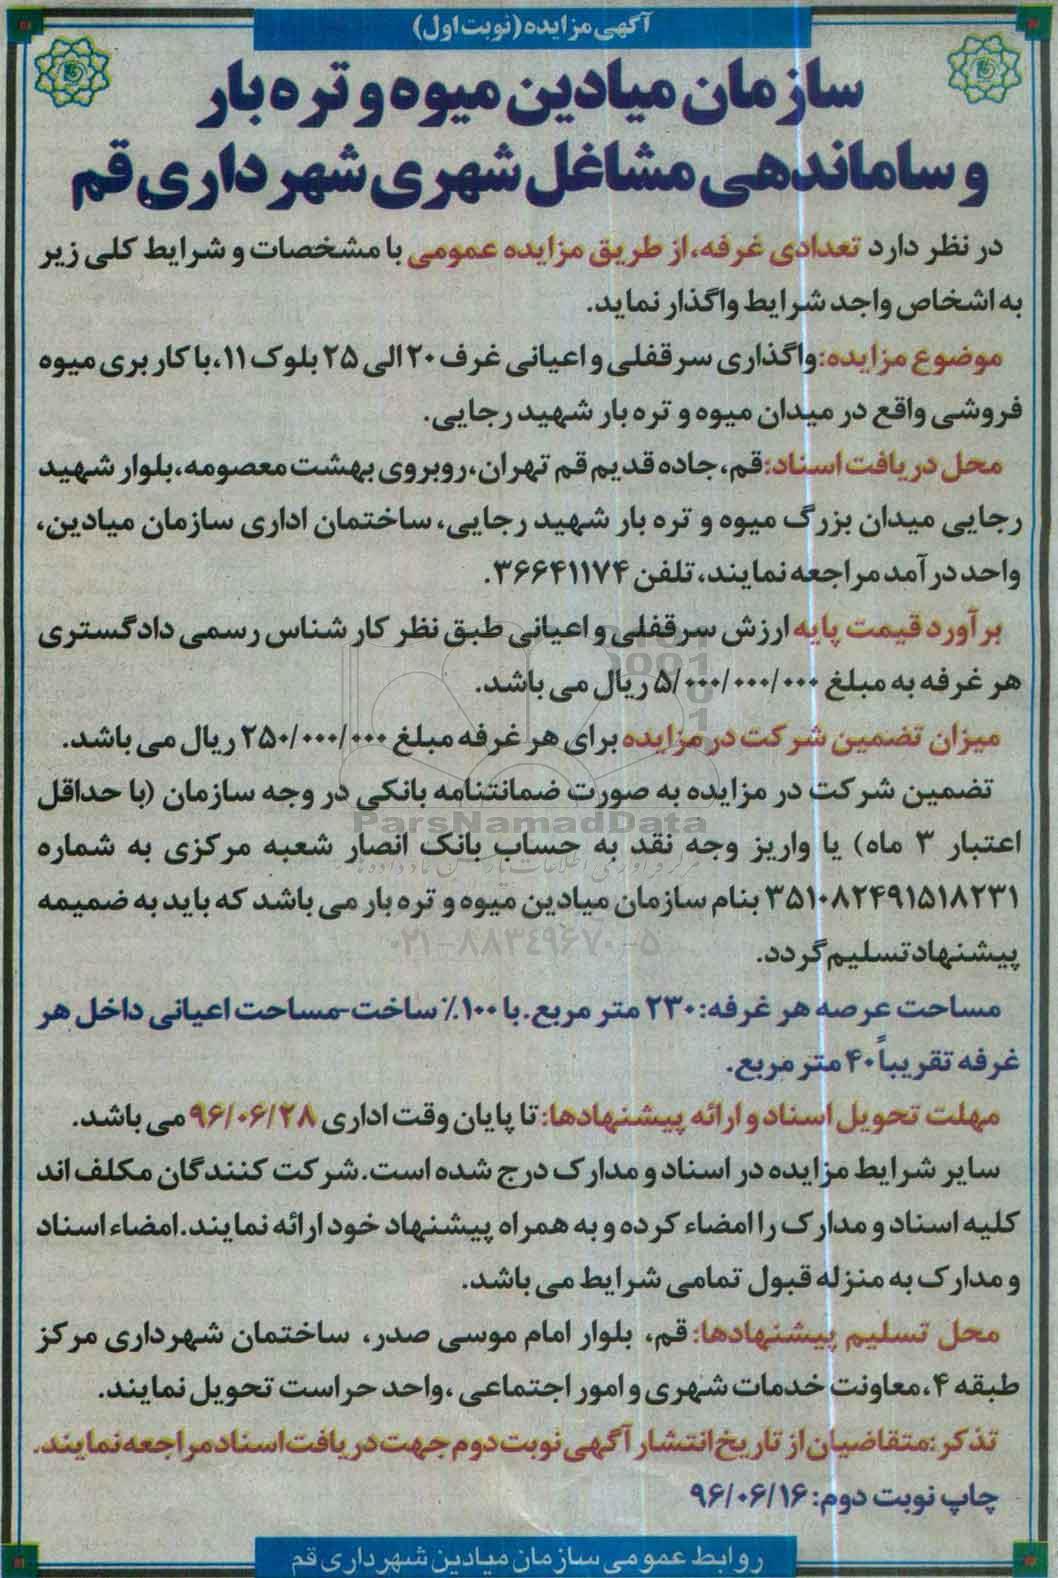 آگهی مزایده (نوبت اول)
سازمان میادین میوه و تره بار
و ساماندهی مشاغل شهری شهرداری قم
در نظر دارد تعدادی غرفه، از طریق مزایده عمومی با مشخصات و شرایط کلی زیر
به اشخاص واجد شرایط واگذار نماید.
موضوع مزایده: واگذاری سرقفلی و اعیانی غرف ۲۰ الی ۲۵ بلوک ۱۱، با کاربری میوه
فروشی واقع در میدان میوه و تره بار شهید رجایی.
محل دریافت اسناد: قم، جاده قدیم قم تهران، روبروی بهشت معصومه، بلوار شهید
رجایی میدان بزرگ میوه و تره بار شهید رجایی، ساختمان اداری سازمان میادین،
واحد درآمد مراجعه نمایند، تلفن ۳۶۶۴۱۱۷۴.
برآورد قیمت پایه ارزش سرقفلی و اعیانی طبق نظر کارشناس رسمی دادگستری
هر غرفه به مبلغ ۵/۰۰۰/۰۰۰/۰۰۰ ریال می باشد.
میزان تضمین شرکت در مزایده برای هر غرفه مبلغ ۲۵۰/۰۰۰/۰۰۰ ریال می باشد.
تضمین شرکت در مزایده به صورت ضمانتنامه بانکی در وجه سازمان (با حداقل
ParsNamadData
اعتبار ۳ ماه) یا واریز وجه نقد به حساب بانک انصار شعبه مرکزی به شماره
۳۵۱۰۸۲۴۹۱۵۱۸۲۳۱ بنام سازمان میادین میوه و تره بار می باشد که باید به ضمیمه
۰۲۱-۸۸۳۴۹۶۷۰-۵
پیشنهاد تسلیم گردد.
مساحت عرصه هر غرفه: ۲۳۰ متر مربع. با ۱۰۰٪ ساخت-مساحت اعیانی داخل هر
غرفه تقریباً ۴۰ متر مربع.
مهلت تحویل اسناد و ارائه پیشنهادها: تا پایان وقت اداری ۹۶/۰۶/۲۸ می باشد.
سایر شرایط مزایده در اسناد و مدارک درج شده است. شرکت کنندگان مکلف اند
کلیه اسناد و مدارک را امضاء کرده و به همراه پیشنهاد خود ارائه نمایند. امضاء اسناد
و مدارک به منزله قبول تمامی شرایط می باشد.
محل تسلیم پیشنهادها: قم، بلوار امام موسی صدر، ساختمان شهرداری مرکز
طبقه ۴، معاونت خدمات شهری و امور اجتماعی، واحد حراست تحویل نمایند.
تذکر: متقاضیان از تاریخ انتشار آگهی نوبت دوم جهت دریافت اسناد مراجعه نمایند.
چاپ نوبت دوم: ۹۶/۰۶/۱۶
روابط عمومی سازمان میادین شهرداری قم